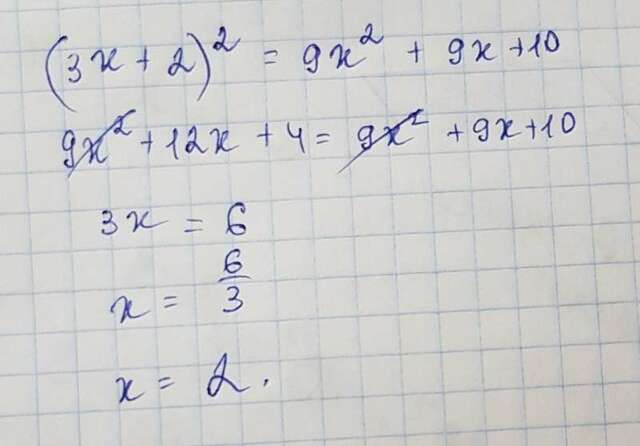 (3x + 2)² = 9x² + 9x + 10
9x² + 12x + 4 = 9x² + 9x + 10
3x = 6
x = 6/3
x = 2.